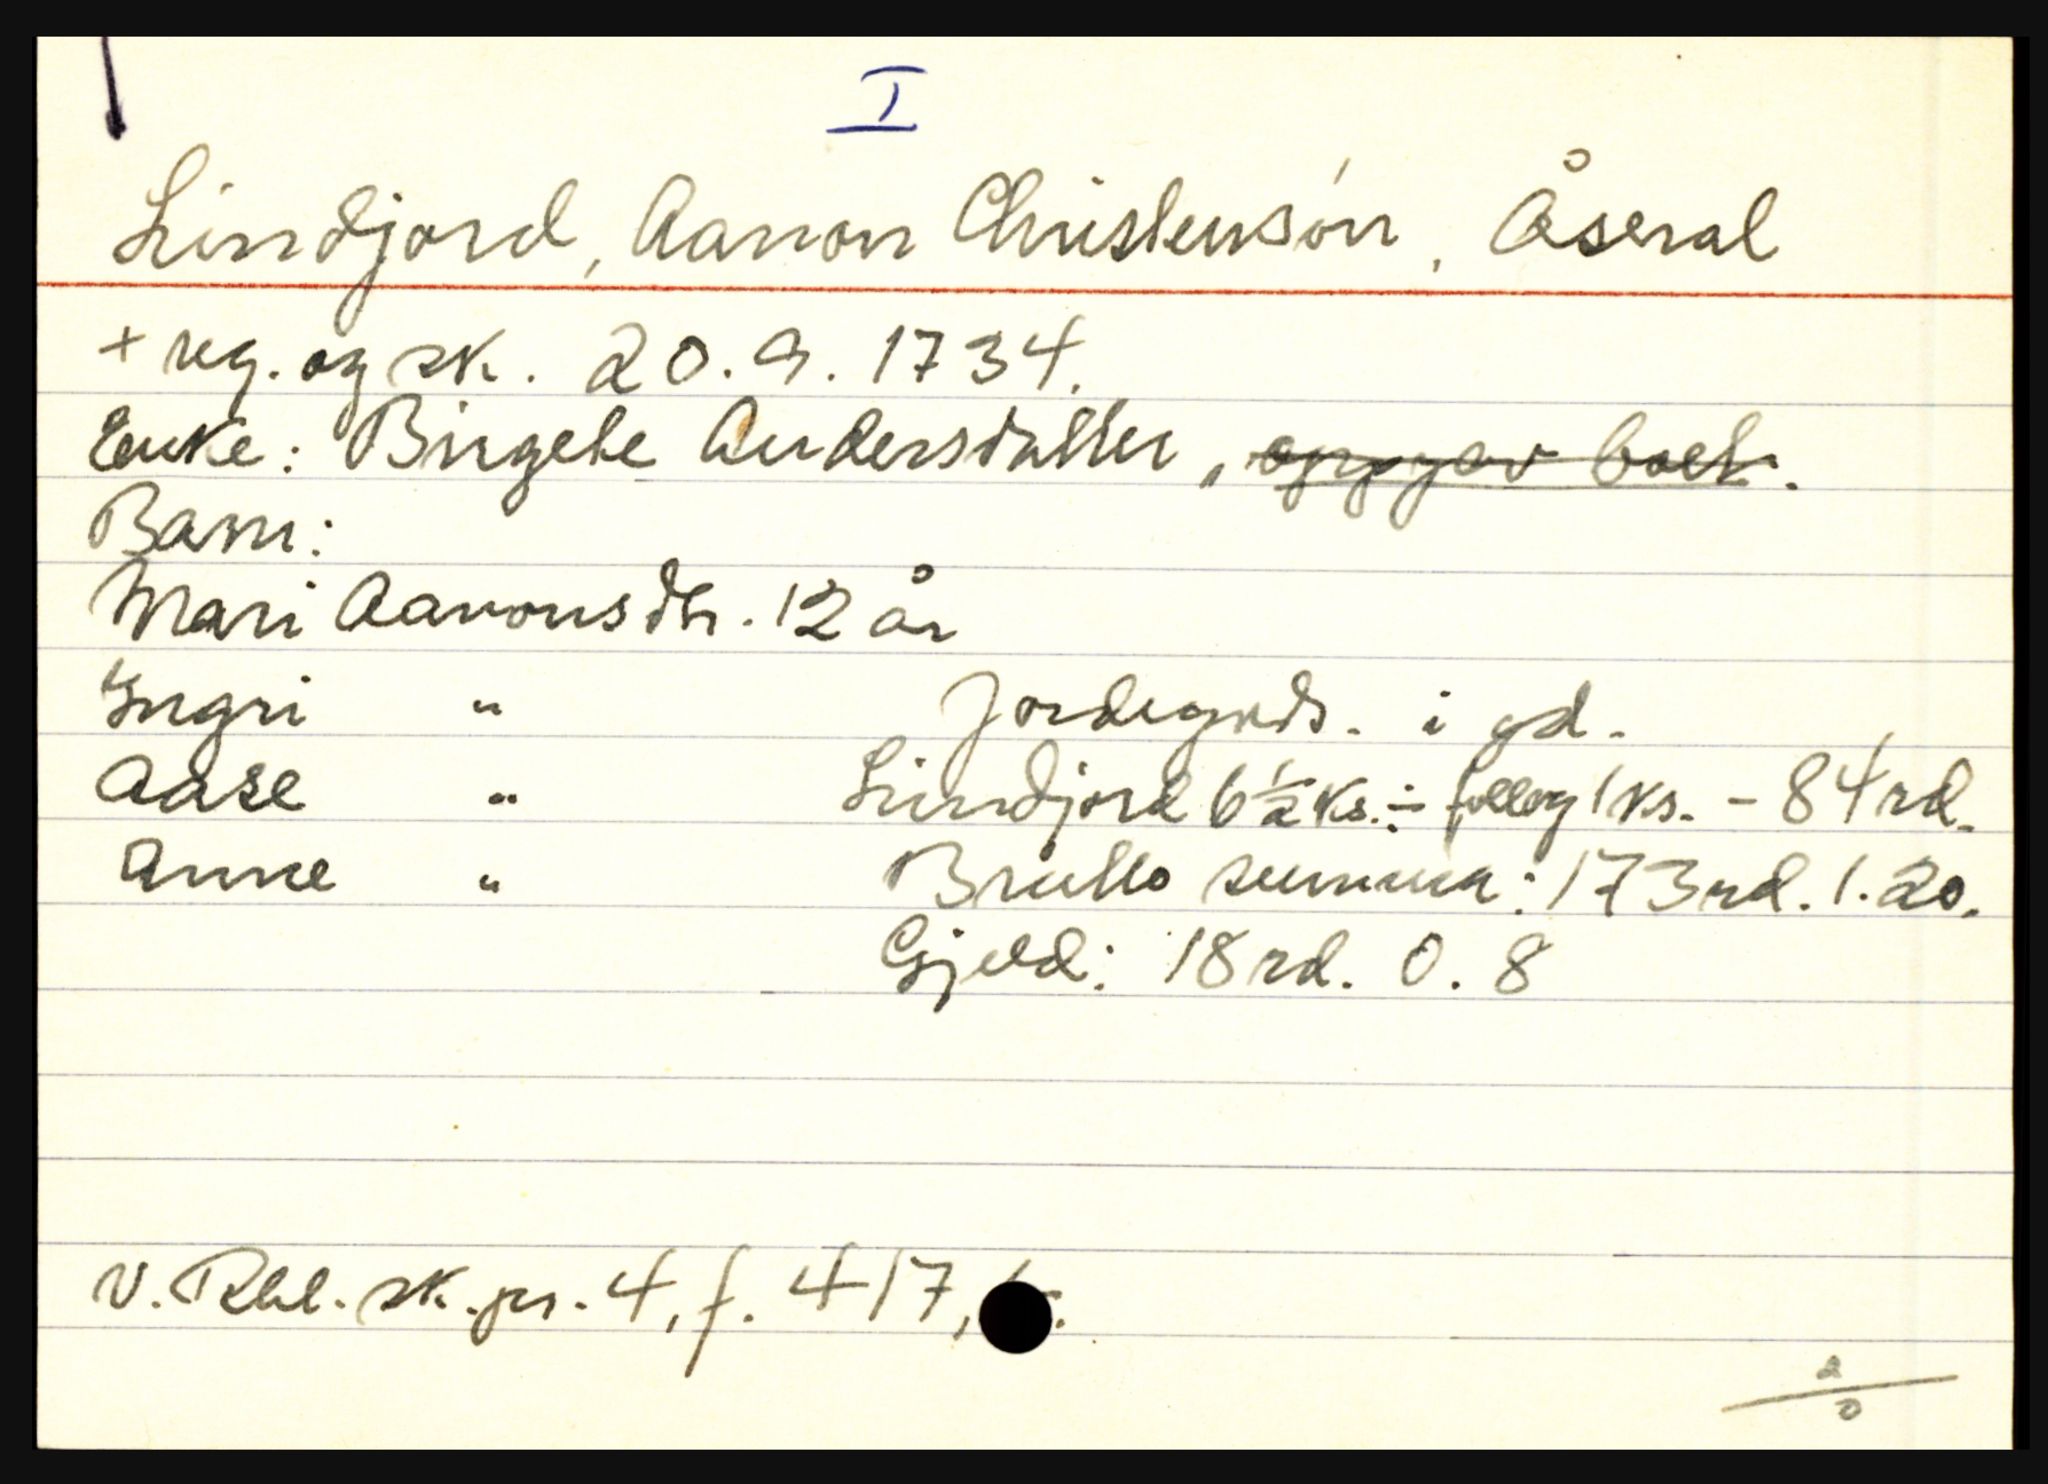 I
Lindjord, Aanon Christensøn, Åseral
+ reg. og sk. 20. 9. 1734.
Enke: Birgete Andersdatter, oppgav boet.
Barn:
Mari Aanonsdtr. 12 år
Ingri "
Aase "
Anne "
Jordegods. i gd.
Lindjord 6 ½ ks. ÷ follog 1 ks. - 84 rd.
Brutto summa: 173 rd. 1. 20.
Gjeld: 18 rd. 0. 8
V. Rbl. sk. pr. 4, f. 417,
2/0